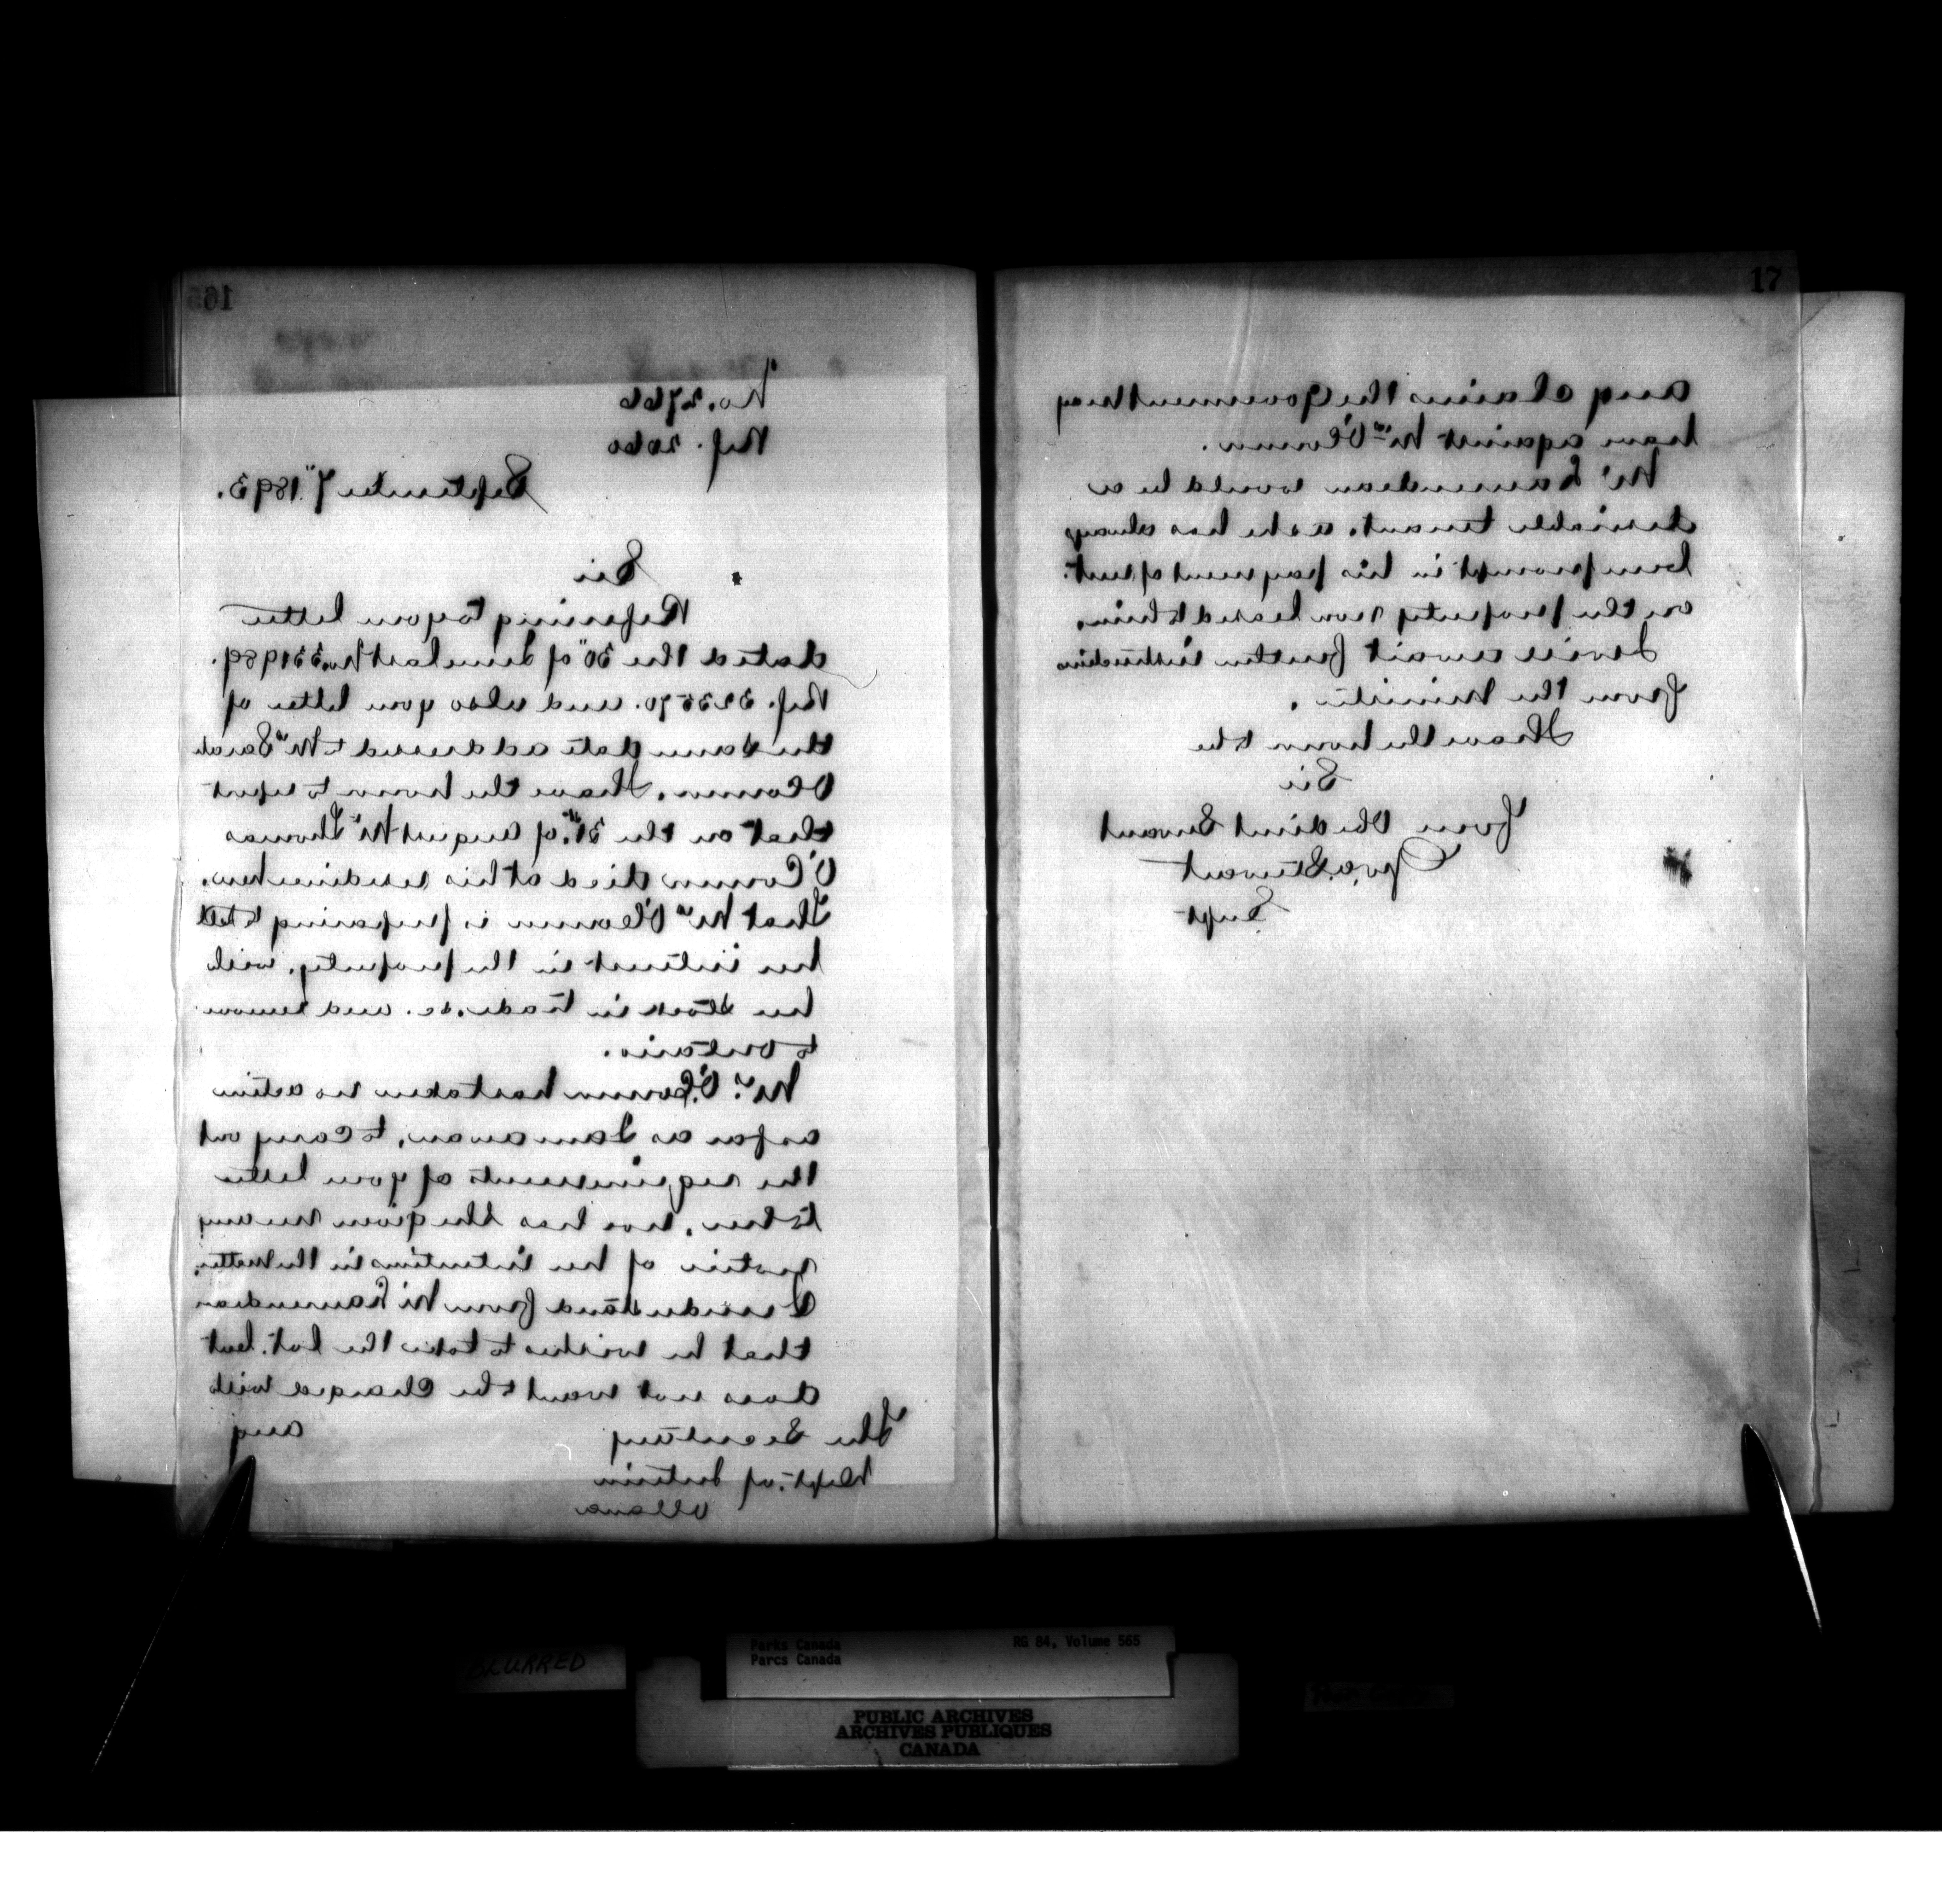 165
No. 2766
Ref. 2060
September 7" 1893.
Sir
Referring to your letter
dated the 30" of June last No.
Ref. and also your letter of
the same date addressed to Mrs Sarah
OConnor. I have the honor to report
that on the of August Mr Thomas
O'Connor died at his residence here.
That Mrs O'Connor is preparing to sell
her interest in the property, with
her stock in trade. &c. and remove
to Ontario.
Mrs. O'Connor has taken no action
as far as I am aware, to carry out
the requirements of your letter
to her, nor has she given me any
notice of her intentions in the matter.
I understand from Mr
that he wishes to take the lot. but
does not want to be charged with
any
The Secretary
Dept. of Interior
Ottawa
17
any claims the Government may
have against Mrs O'Connor.
Mr would be a
desirable tenant. as he has always
been prompt in his payment of rent.
on the property now leased to him.
I will await further instructions
from the Minister.
I have the honor to be
Sir
Your Obedient Servant
Geo. A. Stewart
Supt
BLURRED
Parks Canada
Parcs Canada
RG 84, Volume 565
PUBLIC ARCHIVES
ARCHIVES PUBLIQUES
CANADA